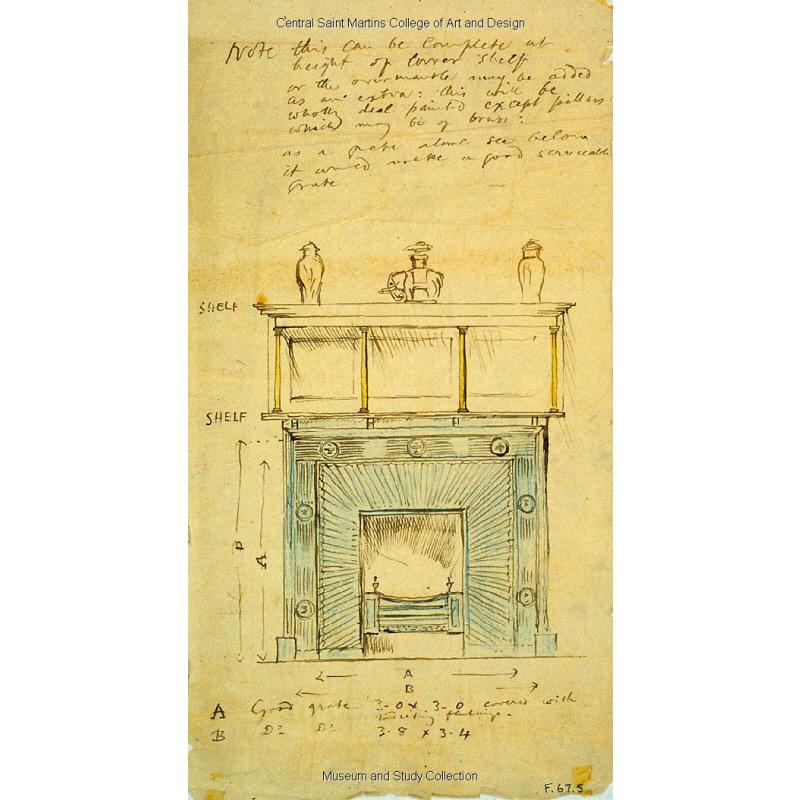 Central Saint Martins College of Art and Design
Note this can be complete at
height of lower shelf
or the overmantle may be added
as an extra: this will be
wholly deal painted except pillars
which may be of brass:
as a grate alone see below
it would make a good serviceable
grate
SHELF
SHELF
B
A
A
B
A Good grate 3-0 x 3-0 covered with
radiating flutings.
B Do Do 3-8 x 3-4
Museum and Study Collection
F.67.5